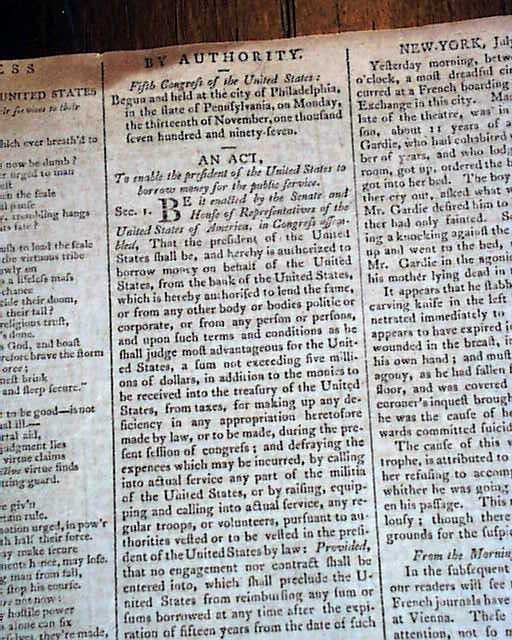 ESS
UNITED STATES
hich ever breath'd to
now be dumb?
er urged to man
in the scale
trembling hangs
its fate?
to load the scale
the virtuous tribe
a lifeless mass
their doom,
their fall?
religious trust,
's done.
s God, and boast
refore brave the storm
and sleep secure."
to be good—is not
al aid,
judgment lies
virtue claims
virtue finds
ting guard.
e giv'n
rule.
motion urged, in pow'r
th half their force.
ay make secure
may lose.
g man from fall,
stop his course.
are not now:
hostile power
alone can fix
selves, they're made,
BY AUTHORITY.
Fifth Congreſs of the United States:
Begun and held at the city of Philadelphia,
in the ſtate of Pennſylvania, on Monday,
the thirteenth of November, one thouſand
ſeven hundred and ninety-ſeven.
AN ACT,
To enable the preſident of the United States to
borrow money for the public ſervice.
Sec. 1. BE it enacted by the Senate and
Houſe of Repreſentatives of the
United States of America, in Congreſs aſſem-
bled, That the preſident of the United
States ſhall be, and hereby is authoriſed to
borrow money on behalf of the United
States, from the bank of the United States,
which is hereby authoriſed to lend the ſame,
or from any other body or bodies politic or
corporate, or from any perſon or perſons,
and upon ſuch terms and conditions as he
ſhall judge moſt advantageous for the Unit-
ed States, a ſum not exceeding five milli-
ons of dollars, in addition to the monies to
be received into the treaſury of the United
States, from taxes, for making up any de-
ficiency in any appropriation heretofore
made by law, or to be made, during the pre-
ſent ſeſſion of congreſs; and defraying the
expences which may be incurred, by calling
into actual ſervice any part of the militia
of the United States, or by raiſing, equip-
ping and calling into actual ſervice, any re-
gular troops, or volunteers, purſuant to au-
thorities veſted or to be veſted in the preſi-
dent of the United States by law: Provided,
that no engagement nor contract ſhall be
entered into, which ſhall preclude the U-
nited States from reimburſing any ſum or
ſums borrowed at any time after the expi-
ration of fifteen years from the date of ſuch
NEW-YORK, July
Yeſterday morning, betw
o'clock, a moſt dreadful cir
curred at a French boarding
Exchange in this city. Ma
late of the theatre, was in
ſon, about 11 years of a
Gardie, who had cohabited w
ber of years, and who lodg
room, got up, ordered the b
got into her bed. The boy
ther cry out, aſked what w
Mr. Gardie deſired him to
ther had only fainted. So
ing a knocking againſt the
up and went to the bed,
Mr. Gardie in the agonie
his mother lying dead in
It appears that he ſtabb
carving knife in the left
netrated immediately to
appears to have expired i
wounded in the breaſt, i
his own hand; and muſt
agony, as he had fallen f
floor, and was covered
coroner's inqueſt brough
he was the cauſe of h
wards committed ſuicid
The cauſe of this
trophe, is attributed to
her refuſing to accomp
whither he was going
en his paſſage. This
louſy; though there
grounds for the ſuſpic
From the Mornin
In the ſubſequent
our readers will ſee
French journals have
at Vienna. Theſe
attention, not ſo m